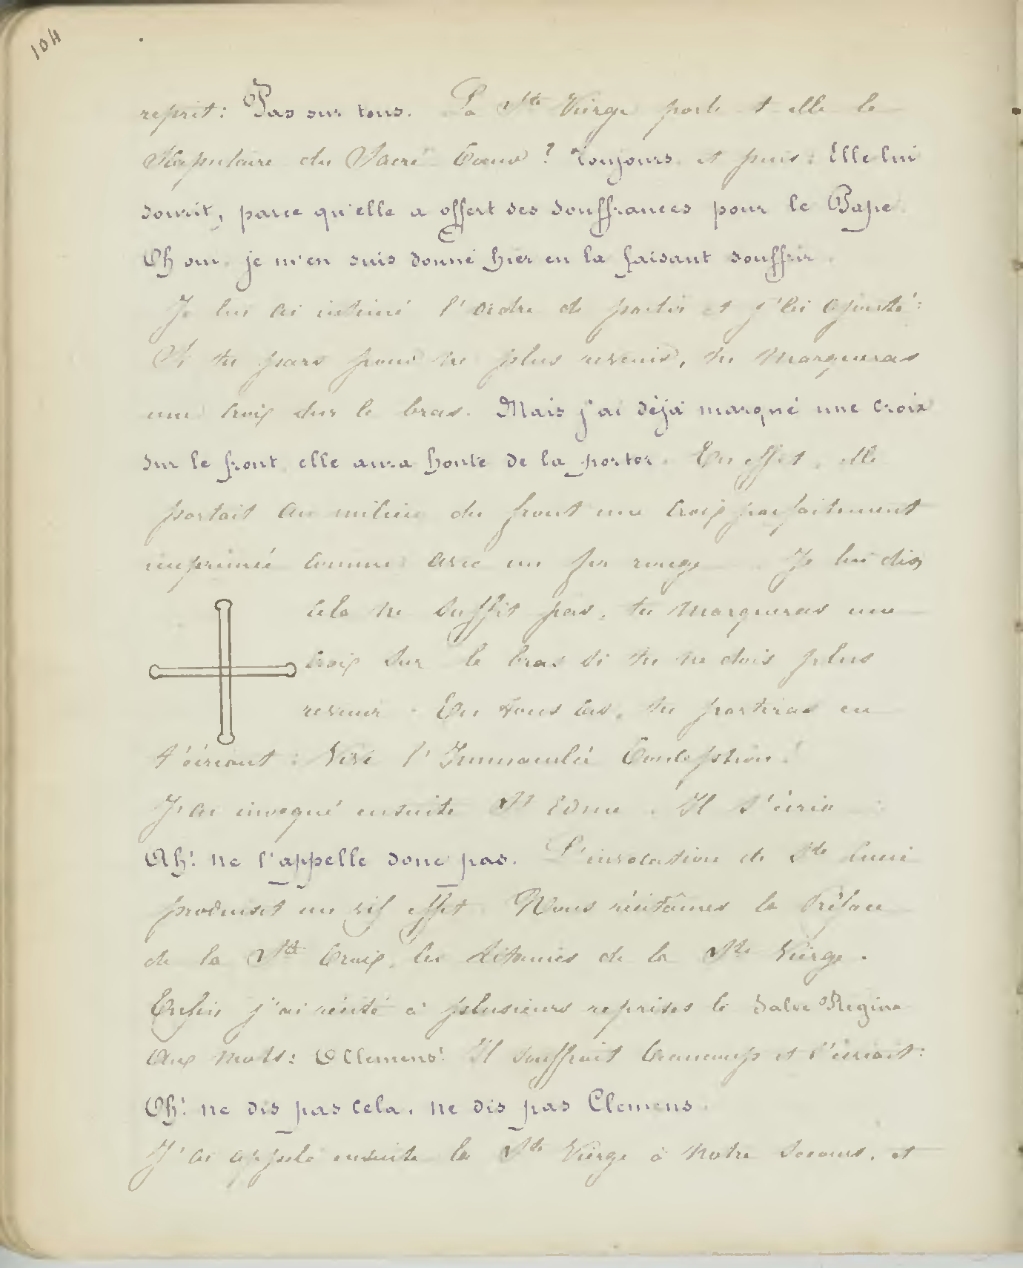 104
reprit: Pas sur tous. La Ste Vierge porte t elle le
Scapulaire du Sacré Coeur? Toujours. et puis: Elle lui
sourit, parce qu'elle a offert ses souffrances pour le Pape
Oh oui, je m'en suis donné hier en la faisant souffrir.
Je lui ai intimé l'ordre de partir et j'ai ajouté:
Si tu pars pour ne plus revenir, tu marqueras
une croix sur le bras. Mais j'ai déjà marqué une croix
sur le front, elle aura honte de la porter. En effet, elle
portait au milieu du front une croix parfaitement
imprimée comme avec un fer rouge. Je lui dis,
cela ne suffit pas, tu marqueras une
croix sur le bras si tu ne dois plus
revenir. En tous cas, tu partiras en
t'écriant: Vive l'Immaculée Conception!
J'ai invoqué ensuite St Edme. Il s'écria:
Ah! ne l'appelle donc pas. L'invocation de Ste
produisit un vif effet. Nous récitâmes la Préface
de la Ste Croix, les Litanies de la Ste Vierge.
Enfin j'ai récité à plusieurs reprises le Salve Regina
Aux mots: O Clemens! Il souffrait beaucoup et s'écriait:
Oh! ne dis pas cela, ne dis pas Clemens.
J'ai appelé ensuite la Ste Vierge à notre secours, et